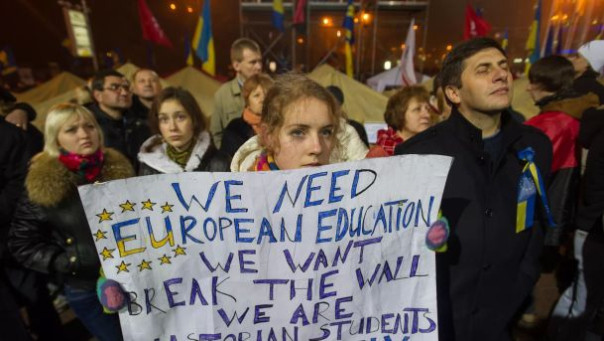 WE NEED
EUROPEAN EDUCATION
WE WANT
BREAK THE WALL
WE ARE
STUDENTS